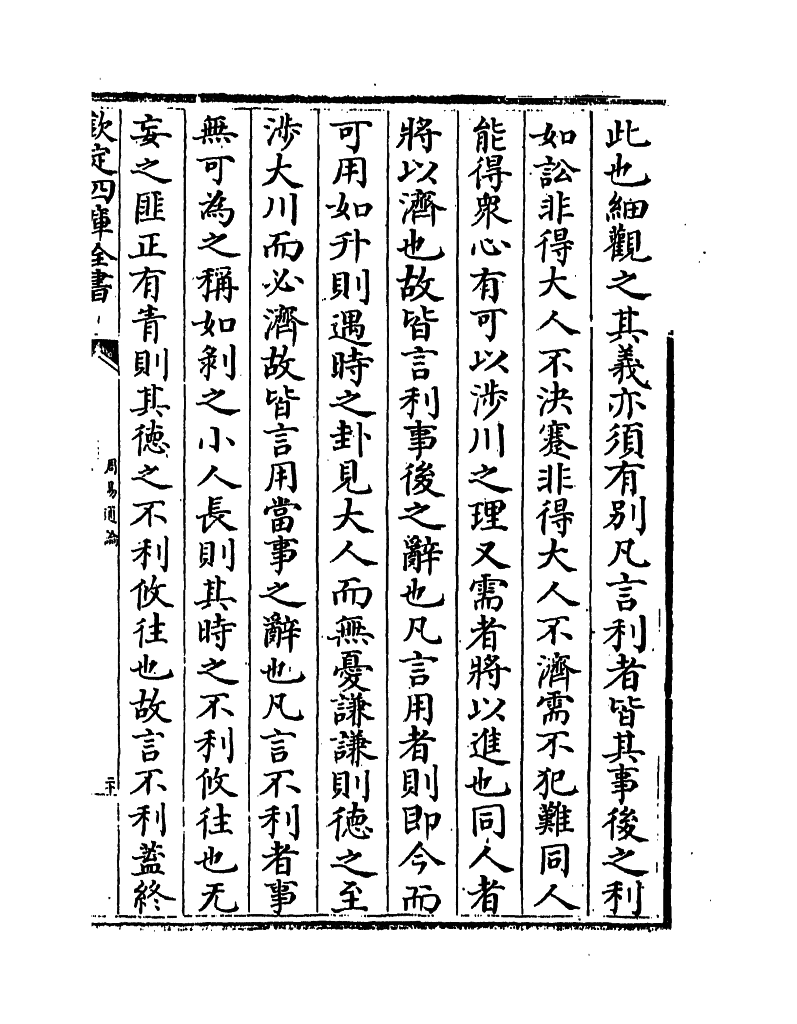 此也細觀之其義亦須有别凡言利者皆其事後之利
如訟非得大人不決蹇非得大人不濟需不犯難同人
能得衆心有可以涉川之理又需者將以進也同人者
將以濟也故皆言利事後之辭也凡言用者則即今而
可用如升則遇時之卦見大人而無憂謙謙則徳之至
涉大川而必濟故皆言用當事之辭也凡言不利者事
無可為之稱如剝之小人長則其時之不利攸往也无
妄之匪正有眚則其徳之不利攸往也故言不利蓋終
欽定四庫全書
周易通論
二十